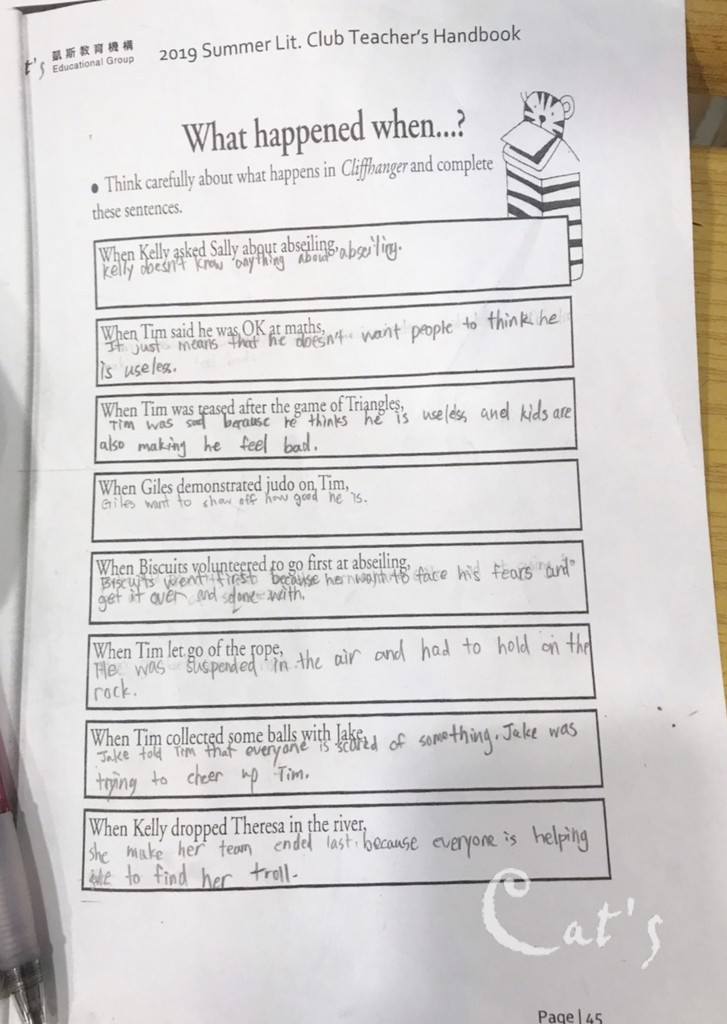 t's 凱斯教育機構
Educational Group
2019 Summer Lit. Club Teacher's Handbook
What happened when...?
• Think carefully about what happens in Cliffhanger and complete
these sentences.
When Kelly asked Sally about abseiling,
Kelly doesn't know anything about abseiling.
When Tim said he was OK at maths,
It just means that he doesn't want people to think he
is useless.
When Tim was teased after the game of Triangles,
Tim was sad because he thinks he is useless and kids are
also making he feel bad.
When Giles demonstrated judo on Tim,
Giles want to show off how good he is.
When Biscuits volunteered to go first at abseiling,
Biscuits went first because he want to face his fears and
get it over and done with.
When Tim let go of the rope,
He was suspended in the air and had to hold on the
rock.
When Tim collected some balls with Jake,
Jake told Tim that everyone is scared of something. Jake was
trying to cheer up Tim.
When Kelly dropped Theresa in the river,
she make her team ended last. because everyone is helping
to find her troll.
Cat's
Page | 45